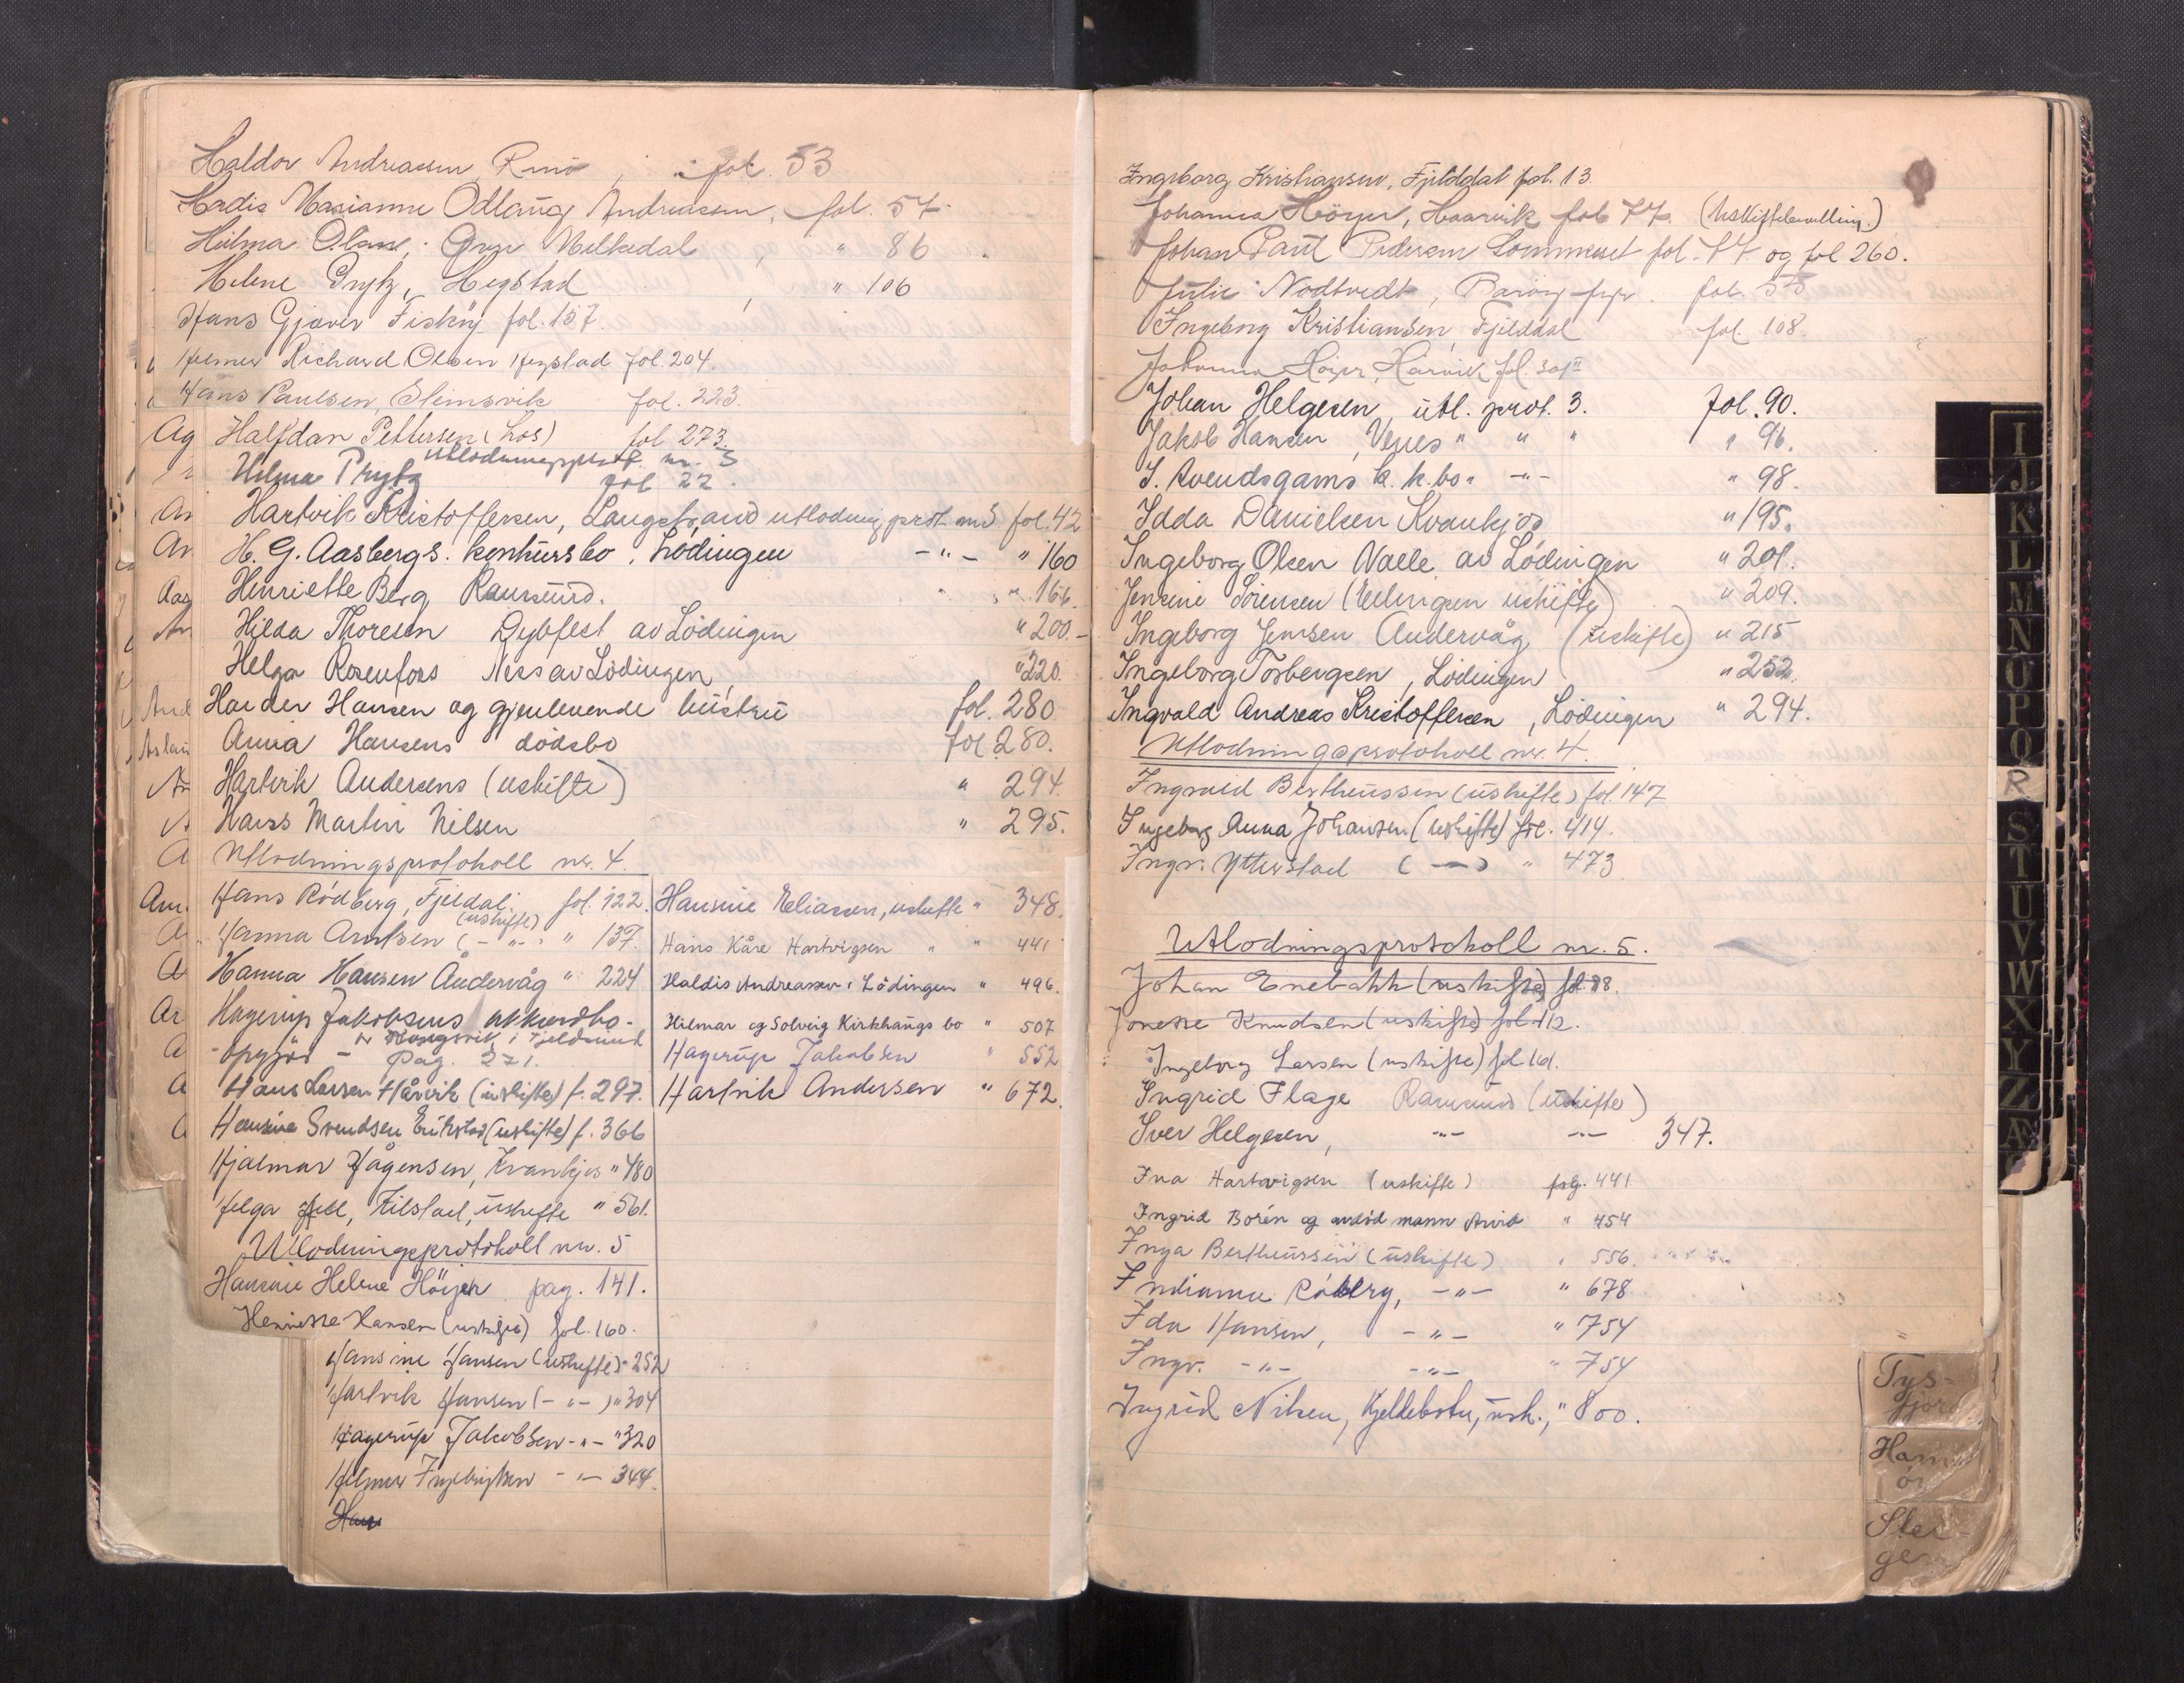 Haldor Andreassen, Rinö, fol. 53
Hadis Marianne Odlaug Andreassen, fol. 57
Hilma Olsen, Øvre Melkedal, " 86
Helene Prytz, Hegstad, " 106
Hans Gjæver Fiskøy fol. 157.
Helmer Richard Olsen Hegstad fol. 204.
Hans Paulsen, Slemsvik fol. 223.
Halfdan Pettersen (Los) fol 273.
utlodningsprot. nr. 3
Hilma Prytz fol 22.
Hartvik Kristoffersen, Langstrand utlodning prot. nr 3 fol. 42
H. G. Aasbergs. konkursbo, Lödingen -"- " 160
Henriette Berg Ramsund. " 166.
Hilda Thoresen Dybfest av Lödingen " 200.-
Helga Rosenfors Ness av Lödingen, " 220.
Harder Hansen og gjenlevende hustru fol. 280
Anna Hansens dödsbo fol 280.
Hartvik Andersens (uskifte) " 294.
Hans Martin Nilsen " 295.
Utlodningsprotokoll nr. 4.
Hans Rödberg, Fjeldal fol. 122.
(uskifte)
Hanna Arntsen (-"-) " 137.
Hanna Hansen Åndervåg " 224
Hagerup Jakobsens akkordbo-
oppgjör - Pag. 271.
Hans Larsen Hårvik (uskifte) f. 297.
Hansine Svendsen Erikstad (uskifte) f. 366
Hjalmar Hågensen, Kvankjos " 480
Helga Hell, Kilstad, uskifte " 561.
Utlodningsprotokoll nr. 5
Hansine Helene Höijer pag. 141.
Henriette Hansen (uskifte) fol. 160.
Hansine Hansen (uskifte) " 252
Hartvik Hansen (-"-) " 304
Hagerup Jakobsen -"- " 320
Hilmar Ingebrigtsen -"- 344.
Hans
Hansine Eliassen, uskifte " 348.
Hans Kåre Hartvigsen " " 441
Haldis Andreassen i Lödingen " 496.
Hilmar og Solveig Kirkhaugs bo " 507
Hagerup Jakobsen " 552
Hartvik Andersen " 672.
Ag
Aas
And
Aslau
Ingeborg Kristiansen, Fjelddal fol. 13
Johanna Höyer, Haarvik fol 77. (Uskiftebevilling.)
Johan Paul Pedersen Sommeset fol. 77 og fol 260.
Julie Nodtvedt, Baröy fol. 55
Ingeborg Kristiansen, Fjelddal fol 108.
Johanna Höyer, Hårvik fol. 301
Johan Helgesen, utl. prot. 3. fol. 90.
Jakob Hansen, Venes " " " " 96.
S. Avendsgams k. k. bo " -"- " 98.
Idda Danielsen Kvankjos " 195.
Ingeborg Olsen Valle av Lödingen " 201.
Jensine Sörensen (Ellingsen uskifte) " 209.
Ingeborg Jensen Åndervåg (uskifte) " 215
Ingeborg Torbergsen, Lödingen " 252.
Ingvald Andreas Kristoffersen, Lödingen " 294.
Utlodningsprotokoll nr. 4.
Ingvald Bertheussen (uskifte) fol. 147
Ingeborg Anna Johansen (uskifte) fol. 414.
Ingv. Ytterstad (-"-) " 473
Utlodningsprotokoll nr. 5.
Johan Enebakk (uskifte) fol. 88.
Jonette Knudsen (uskifte) fol 112.
Ingeborg Larsen (uskifte) fol 161.
Ingrid Flage Ramsund (uskifte)
Iver Helgesen, -"- -"- 347.
Ina Hartvigsen (uskifte) pag. 441
Ingrid Borén og avdöd mann Arvid " 454
Inga Bertheussen (uskifte) " 556.
Indianna Rödberg, -"- " 678
Ida Hansen, -"- " 754
Ingv. -"- -"- " 754
Ingrid Nilsen, Kjeldebotn, usk., " 800.
I
J
K
L
M
N
O
P
Q
R
S
T
U
V
W
X
Y
Z
Æ
Ø
Tys-
fjord
Ham
ör
Stei-
gen